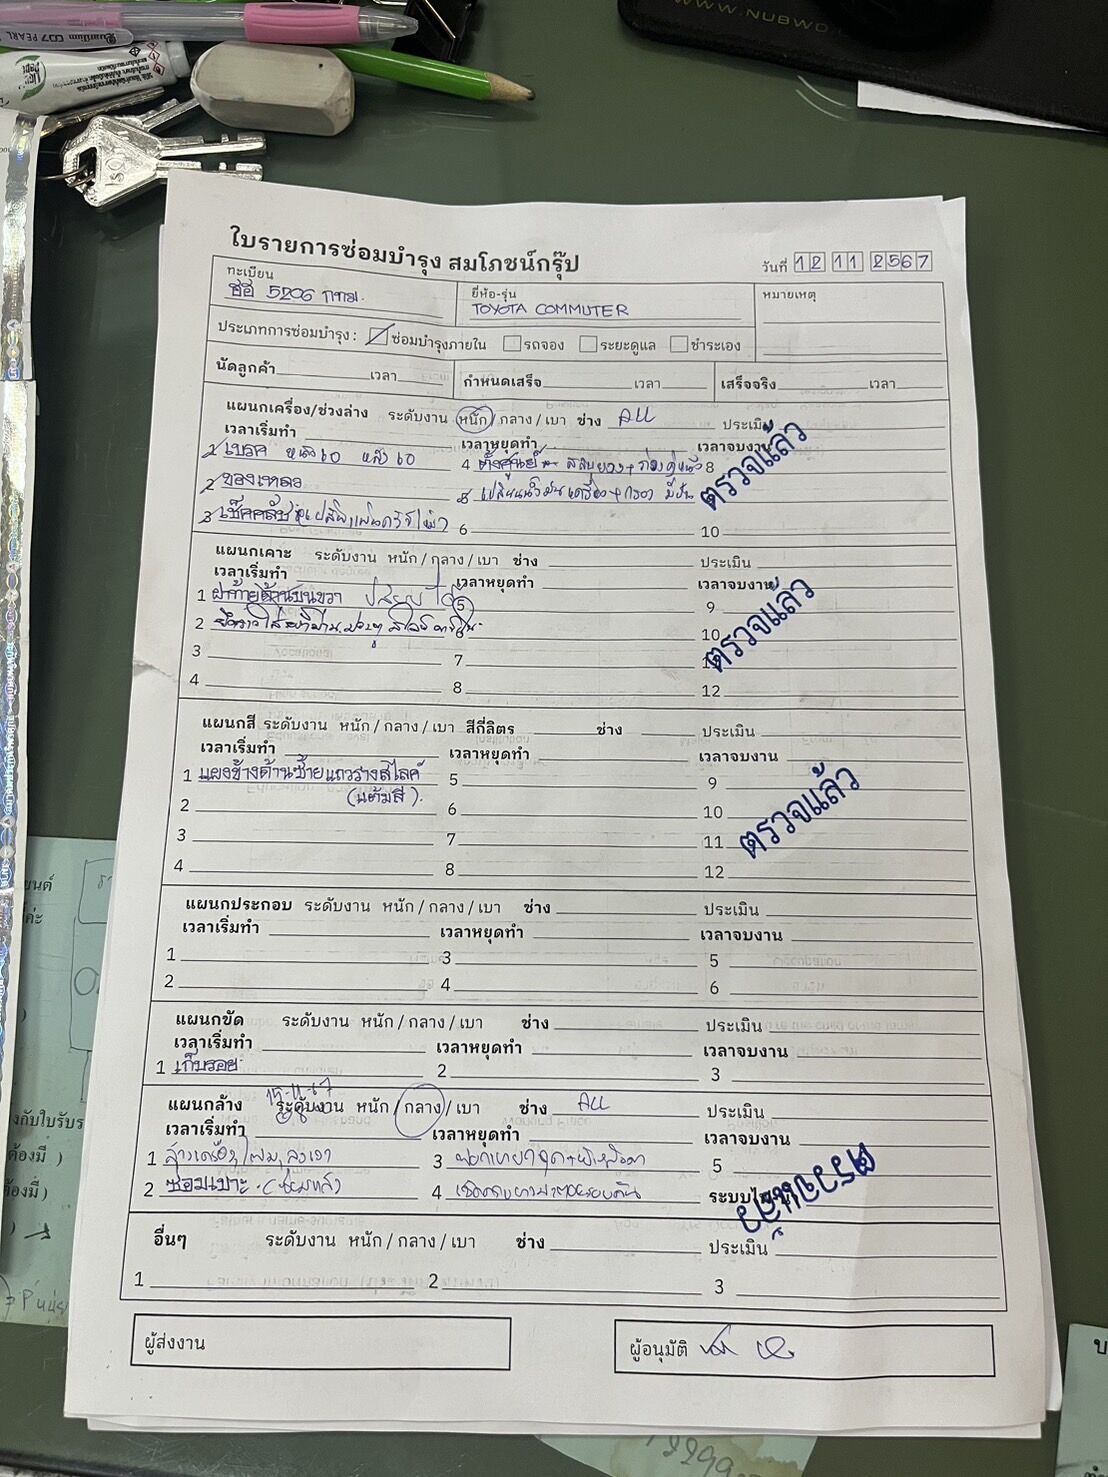 WWW.NUBWO
Quantum 007 PEARL
ใบรายการซ่อมบำรุง สมโภชน์กรุ๊ป
วันที่ 12 11 2567
ทะเบียน
ฮอี 5206 กทม.
ยี่ห้อ-รุ่น
TOYOTA COMMUTER
หมายเหตุ
ประเภทการซ่อมบำรุง : ซ่อมบำรุงภายใน รถจอง ระยะดูแล ชำระเอง
นัดลูกค้า เวลา กำหนดเสร็จ เวลา เสร็จจริง เวลา
แผนกเครื่อง/ช่วงล่าง ระดับงาน หนัก / กลาง / เบา ช่าง ALL ประเมิน
เวลาเริ่มทำ เวลาหยุดทำ เวลาจบงาน
1 เบรค หน้า 60 หลัง 60 4 ตั้งศูนย์ 8
2 ของเหลว 5 เปลี่ยนน้ำมันเครื่อง+กรอง
3 เช็คคลัช 6 10
ตรวจแล้ว
แผนกเคาะ ระดับงาน หนัก / กลาง / เบา ช่าง ประเมิน
เวลาเริ่มทำ เวลาหยุดทำ เวลาจบงาน
1 ฝาท้ายด้านบนขวา 5 9
2 10
3 7 11
4 8 12
ตรวจแล้ว
แผนกสี ระดับงาน หนัก / กลาง / เบา สีกี่ลิตร ช่าง ประเมิน
เวลาเริ่มทำ เวลาหยุดทำ เวลาจบงาน
1 แผงข้างด้านซ้ายแถวรางสไลด์ 5 9
(แต้มสี).
2 6 10
3 7 11
4 8 12
ตรวจแล้ว
แผนกประกอบ ระดับงาน หนัก / กลาง / เบา ช่าง ประเมิน
เวลาเริ่มทำ เวลาหยุดทำ เวลาจบงาน
1 3 5
2 4 6
แผนกขัด ระดับงาน หนัก / กลาง / เบา ช่าง ประเมิน
เวลาเริ่มทำ เวลาหยุดทำ เวลาจบงาน
1 เก็บรอย 2 3
15-11-67
แผนกล้าง ระดับงาน หนัก / กลาง / เบา ช่าง ALL ประเมิน
เวลาเริ่มทำ เวลาหยุดทำ เวลาจบงาน
1 ล้างเครื่อง 3 5
2 ซ่อมเบาะ (ซ่อมแล้ว) 4 ระบบไฟ
ตรวจแล้ว
อื่นๆ ระดับงาน หนัก / กลาง / เบา ช่าง ประเมิน
1 2 3
ผู้ส่งงาน
ผู้อนุมัติ